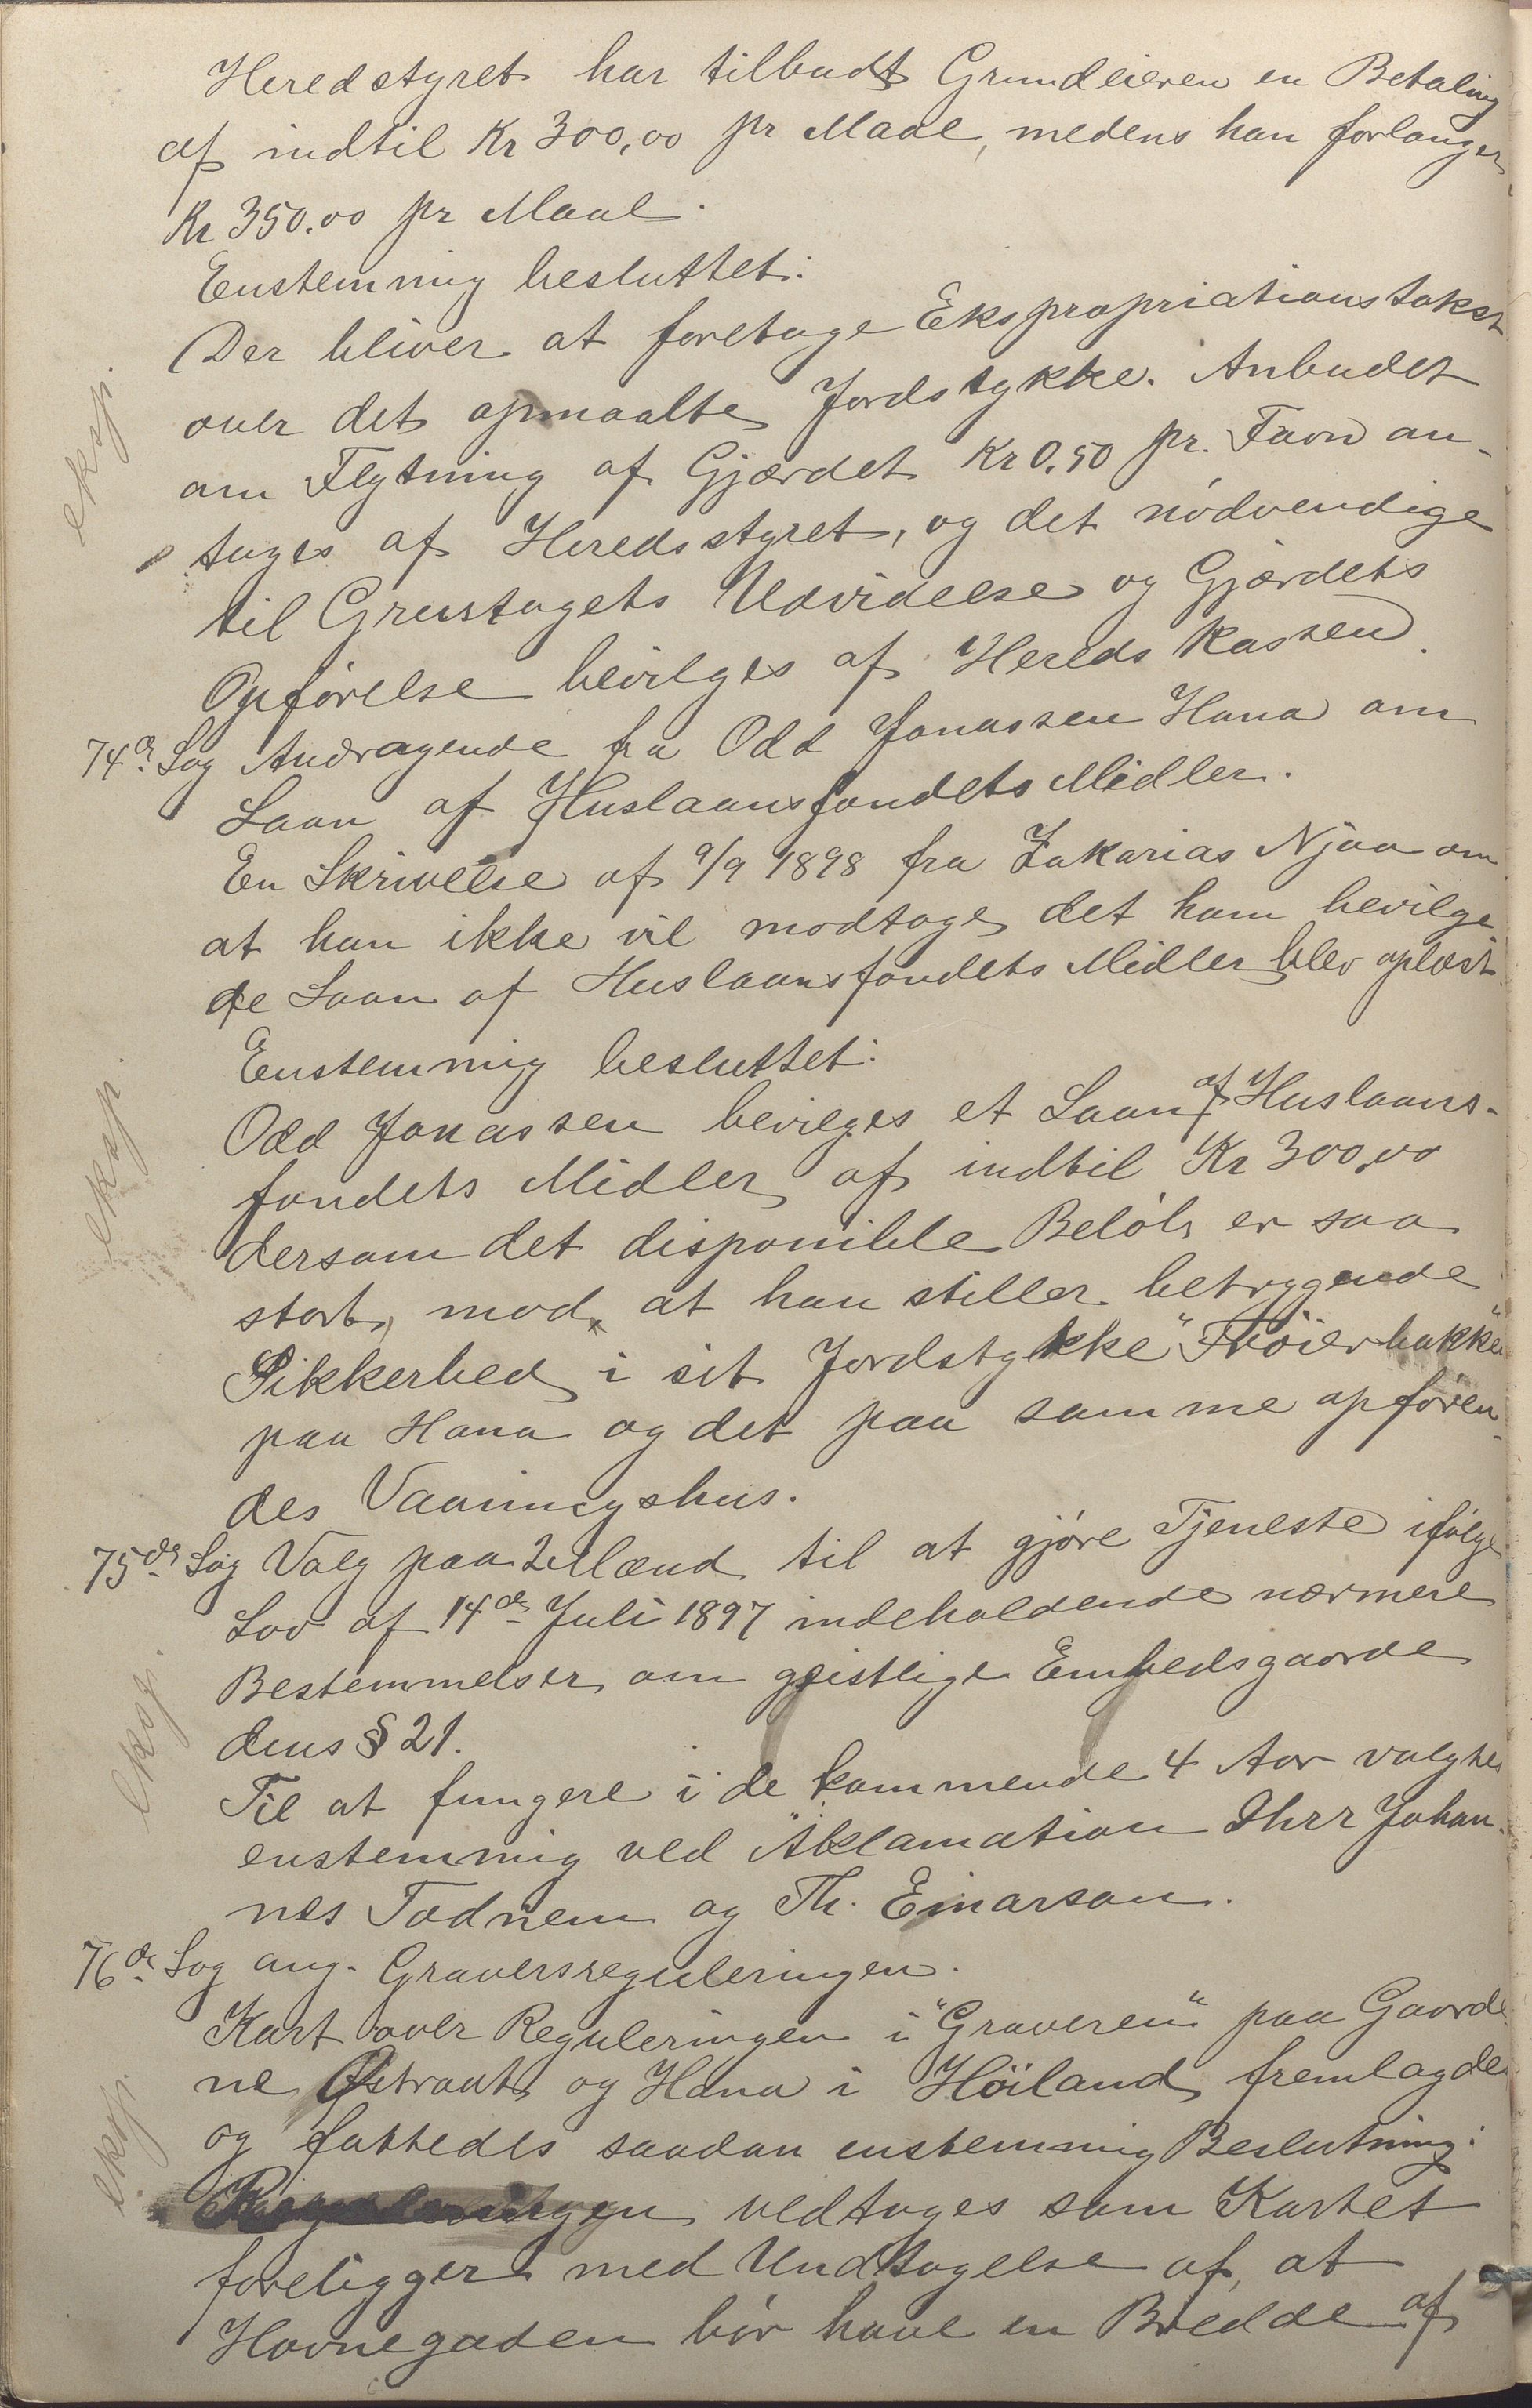 Heredstyret har tilbudt Grundeieren en Betaling
af indtil Kr 300,00 pr Maal, medens han forlanger
Kr 350.00 pr Maal.
Enstemmig besluttet:
Der bliver at foretage Ekspropriationstakst
over det opmaalte Jordstykke. Anbudet
eksp.
om Flytning af Gjærdet Kr 0,50 pr. Favn an-
tages af Heredsstyret, og det nödvendige
til Grustagets Udvidelse og Gjærdets
Opförelse bevilges af Hereds kassen.
74de Sag Andragende fra Odd Jonassen Hana om
Laan af Huslaansfondets Midler.
En Skrivelse af 9/9 1898 fra Zakarias Njaa om
at han ikke vil modtage det ham bevilge
de Laan af Huslaansfondets Midler blev oplæst.
Enstemmig besluttet:
eksp.
Odd Jonassen bevilges et Laan af Huslaans-
fondets Midler af indtil Kr 300,00
dersom det disponible Belöb er saa
stort, mod, at han stiller betryggende
Sikkerhed i sit Jordstykke "Tröierbakken"
paa Hana og det paa samme opfören-
des Vaaningshus.
75de Sag Valg paa 2 Mænd til at gjöre Tjeneste ifölge
Lov af 14de Juli 1897 indeholdende nærmere
Bestemmelser om geistlige Embedsgaarde
eksp.
dens § 21.
Til at fungere i de kommende 4 Aar valgtes
enstemmig ved Aklamation Dhrr Johan-
nes Todnem og Th. Einarson.
76de Sag ang. Graversreguleringen.
Kart over Reguleringen i "Graveren" paa Gaarde
ne Østraat og Hana i Höiland fremlagdes
eksp.
og fattedes saadan enstemmig Beslutning:
Reguleringen vedtages som Kartet
foreligger med Undtagelse af, at
Havnegaden bör have en Bredde af